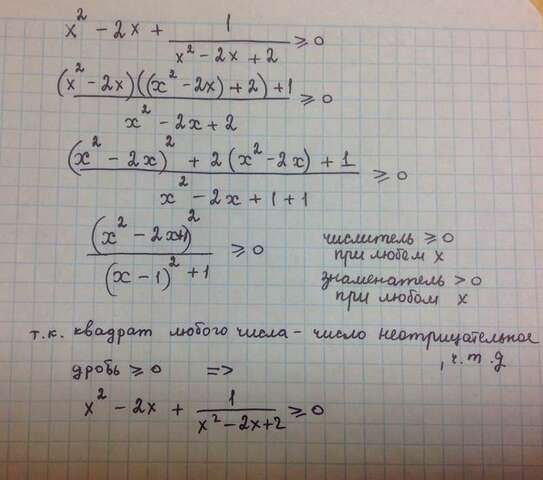 x² - 2x + 1/(x² - 2x + 2) ≥ 0
((x² - 2x)((x² - 2x) + 2) + 1)/(x² - 2x + 2) ≥ 0
((x² - 2x)² + 2(x² - 2x) + 1)/(x² - 2x + 1 + 1) ≥ 0
(x² - 2x+1)²/((x - 1)² + 1) ≥ 0
числитель ≥ 0
при любом x
знаменатель > 0
при любом x
т.к. квадрат любого числа - число неотрицательное
, ч.т.д
дробь ≥ 0 =>
x² - 2x + 1/(x² - 2x + 2) ≥ 0